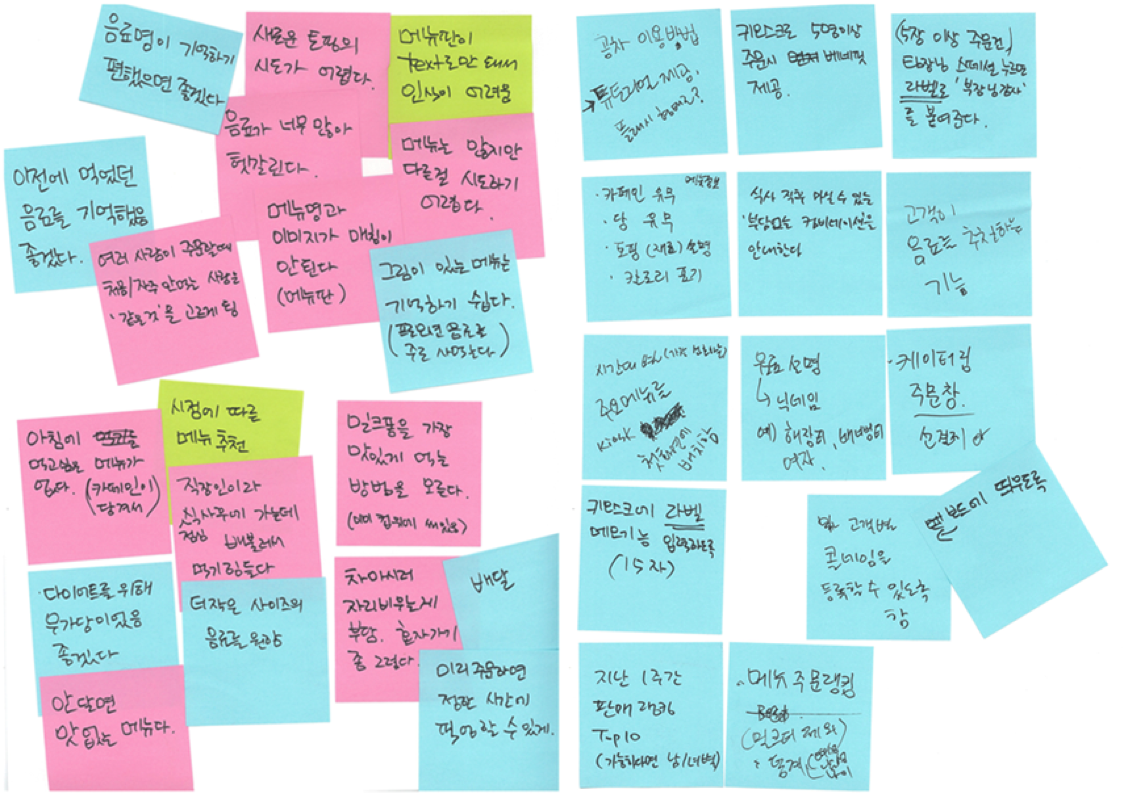 음료명이 기억하기
편했으면 좋겠다
새로운 토핑의
시도가 어렵다.
메뉴판이
Text로만 돼서
인식이 어려움
음료가 너무 많아
헷갈린다.
메뉴는 많지만
다른걸 시도하기
어렵다.
이전에 먹었던
음료를 기억했음
좋겠다.
여러 사람이 주문할때
처음/자주 안먹는 사람은
'같은것'을 고르게 됨
메뉴명과
이미지가 매칭이
안된다
(메뉴판)
그림이 있는 메뉴는
기억하기 쉽다.
(프로모션 음료를
주로 사먹는다)
아침에
먹고싶은 메뉴가
없다. (카페인이
당겨서)
시점에 따른
메뉴 추천
직장인이라
식사후에 가는데
점심 배불러서
먹기힘들다
밀크폼을 가장
맛있게 먹는
방법을 모른다.
(이미 컵위에 써있음)
다이어트를 위해
무가당이었음
좋겠다
더작은 사이즈의
음료를 원함
차마시러
자리비우는게
부담. 혼자가기
좀 그렇다.
배달
안달면
맛없는 메뉴다.
미리주문하면
정확 시간에
픽업할 수 있게.
공차 이용방법
→ 튜토리얼 제공.
플래시 형태로?
키오스크로 5명이상
주문시 먼저 베네핏
제공.
(5잔 이상 주문건)
부장님 스페셜 누르면
라벨로 '부장님감사'
를 붙여준다.
메뉴정보
· 카페인 유무
· 당 유무
· 토핑 (재료) 설명
· 칼로리 표기
식사 직후 마실 수 있는
부담없는 컴비네이션을
안내한다
고객이
음료를 추천하는
기능
시간대 별
주요메뉴를
kiosk
첫화면에
배치함
음료 설명
↳ 닉네임
예) 해장티, 배부렁이
여자.
· 케이터링
주문창.
선결제
키오스크에 라벨
메모기능 입력하도록
(15자)
고객별
콜네임을
등록할 수 있도록
함
벨보드에 띄우도록
지난 1주간
판매 랭킹
Top10
(가능하다면 남/녀별)
메뉴 주문랭킹
(밀크티 제외)
통계